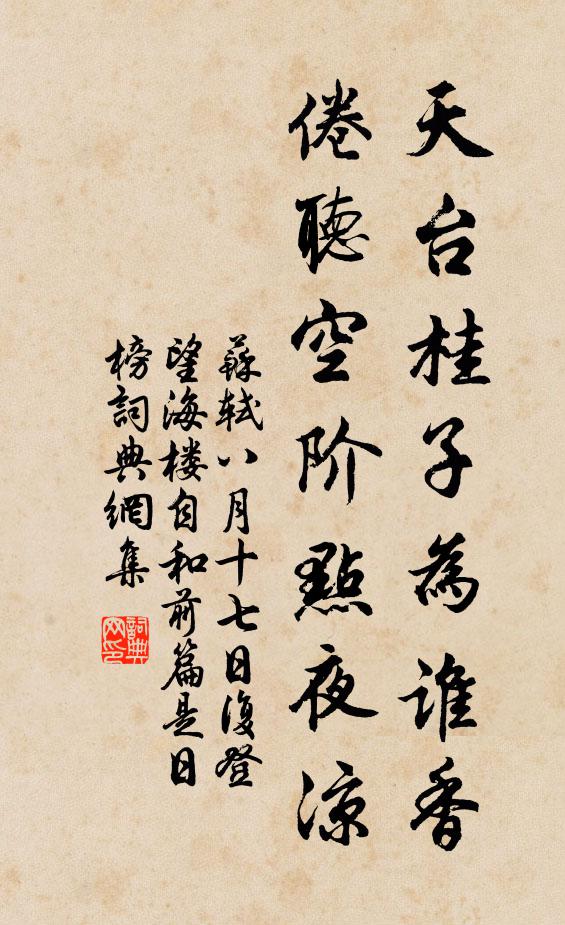 天台桂子為誰香
倦聽空阶點夜涼
蘇軾八月十七日復登
望海楼自和前篇是日
榜詞典網集
詞典
网印